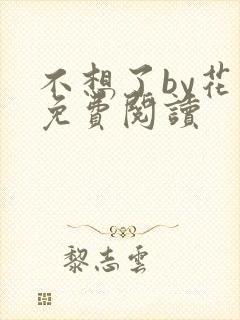 不想了by花
免費閱讀
黎志雲